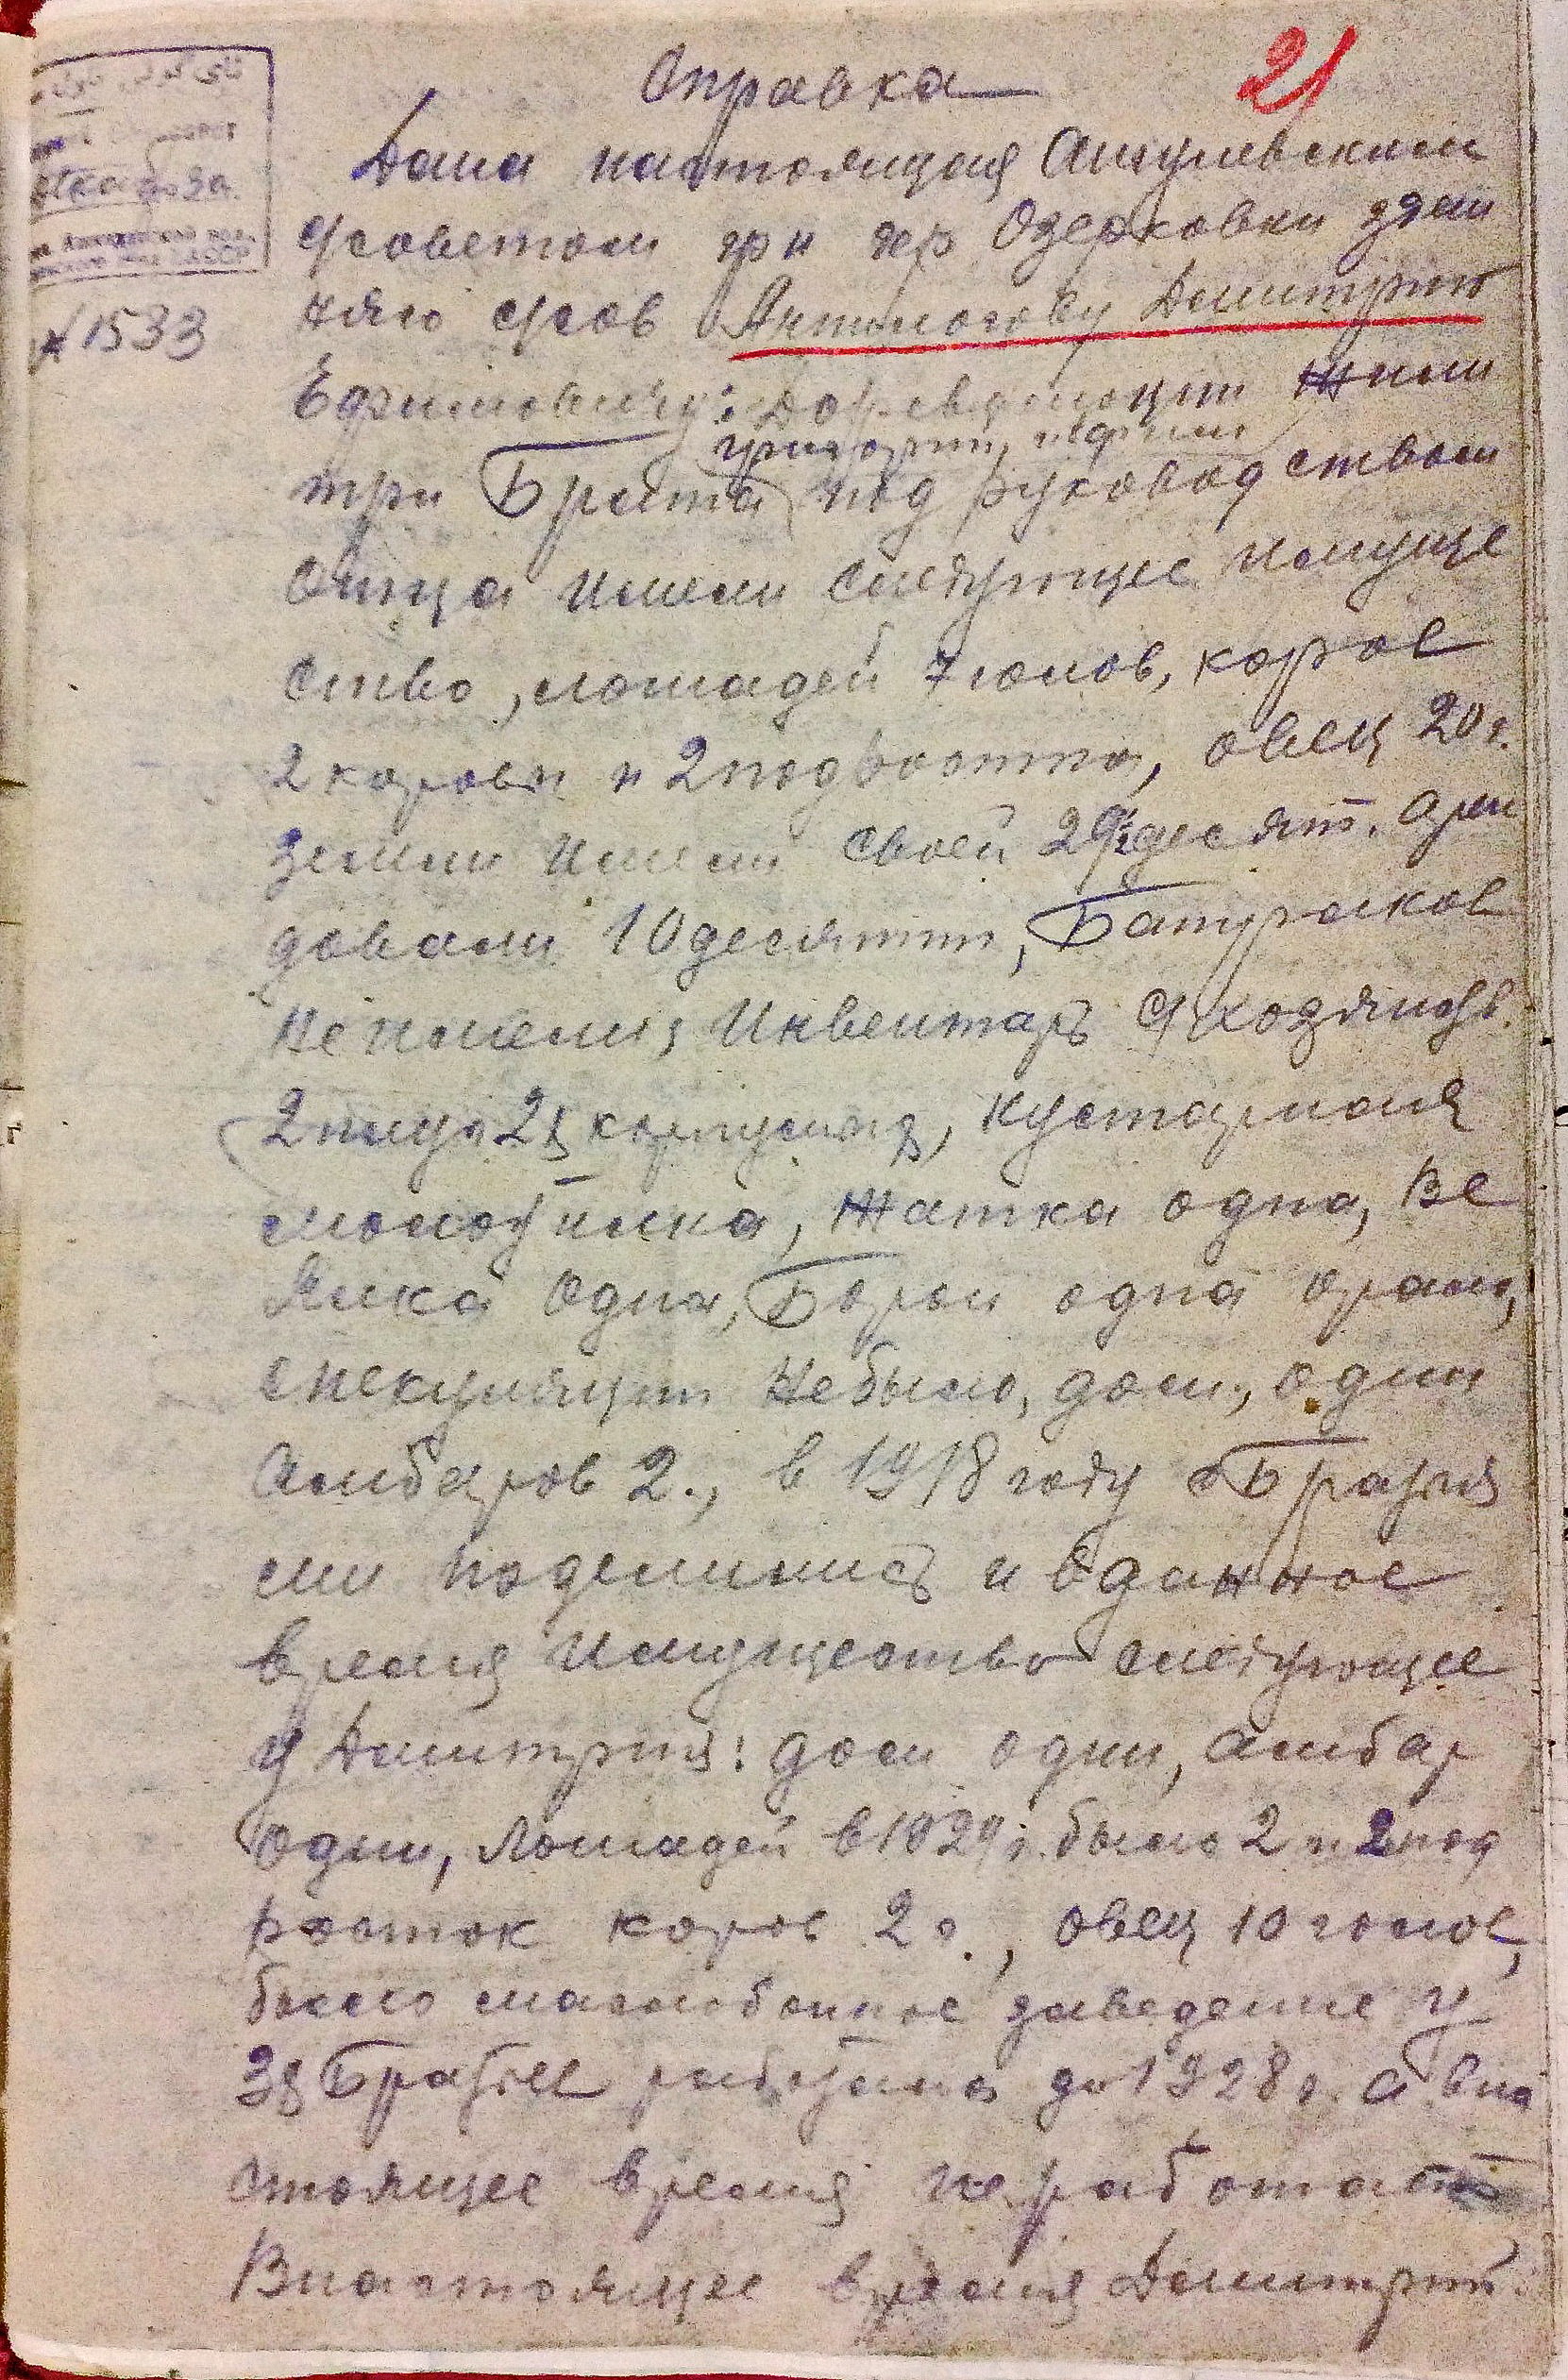 Справка
21
Дана настоящая
с/советом гр н дер Озерковки здеш
няго с/сов Антмогову Дмитрию
№ 1533
Ефимовичу: До революции Жили
григорий,
три Брата под руководством
Отца Имели следующее имуще
ство, лошадей 7 голов, коров
2 коровы и 2 подростка, овец 20 г.
земли Имели своей десят. Арен
довали 10 десятин, Батраков
Не имели, Инвентарь с/хозяйств.
2 плуга 2х корпусных, кустарная
молотилка, Жатка одна, Ве
Ялка Одна, Борон одна
спекуляции Не было, дом, один
Амбаров 2., в 1918 году с Братья
ми поделились и в данное
время Имущество следующее
у Дмитрия: дом один, амбар
один, лошадей в 1929 г. было 2 и 2 под
росток коров 2 г., овец 10 голов,
было маслобойное заведение у
3х Братьев работала до 1928 г. а в на
стоящее время не работает
В настоящее время Дмитрий